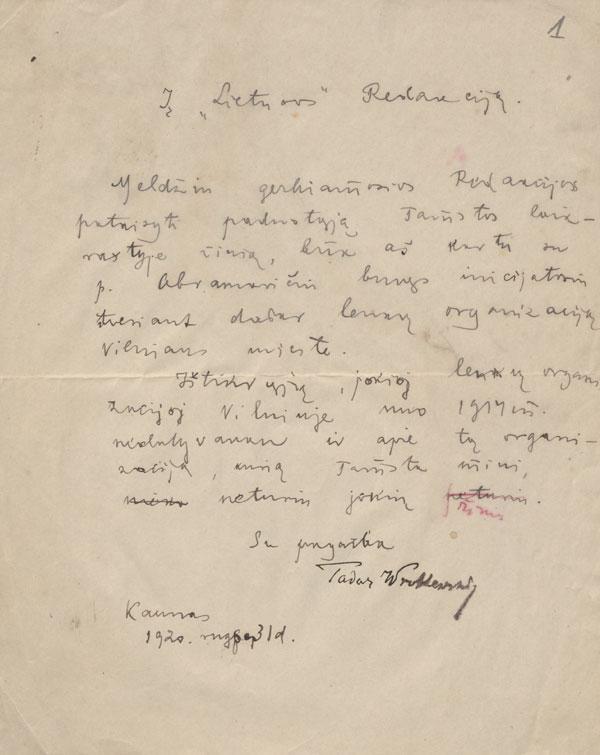 1
Į „Lietuvos" Redakciją.
Meldžiu gerbiamosios Redakcijos
pataisyti paduotąją Tamstos laik-
raštyje žinią, būk aš kartu su
p. Abramavičiu buvęs iniciatoriu
tveriant dabar lenkų organizaciją
Vilniaus mieste.
Ištikrųjų, jokioj lenkų organi
zacijoj Vilniuje nuo 1914 m.
nedalyvavau ir apie tą organi-
zaciją, kurią Tamsta mini,
neturiu jokių žinių.
Su pagarba
Tadas Wróblewski
Kaunas
1920. rugp. 31 d.